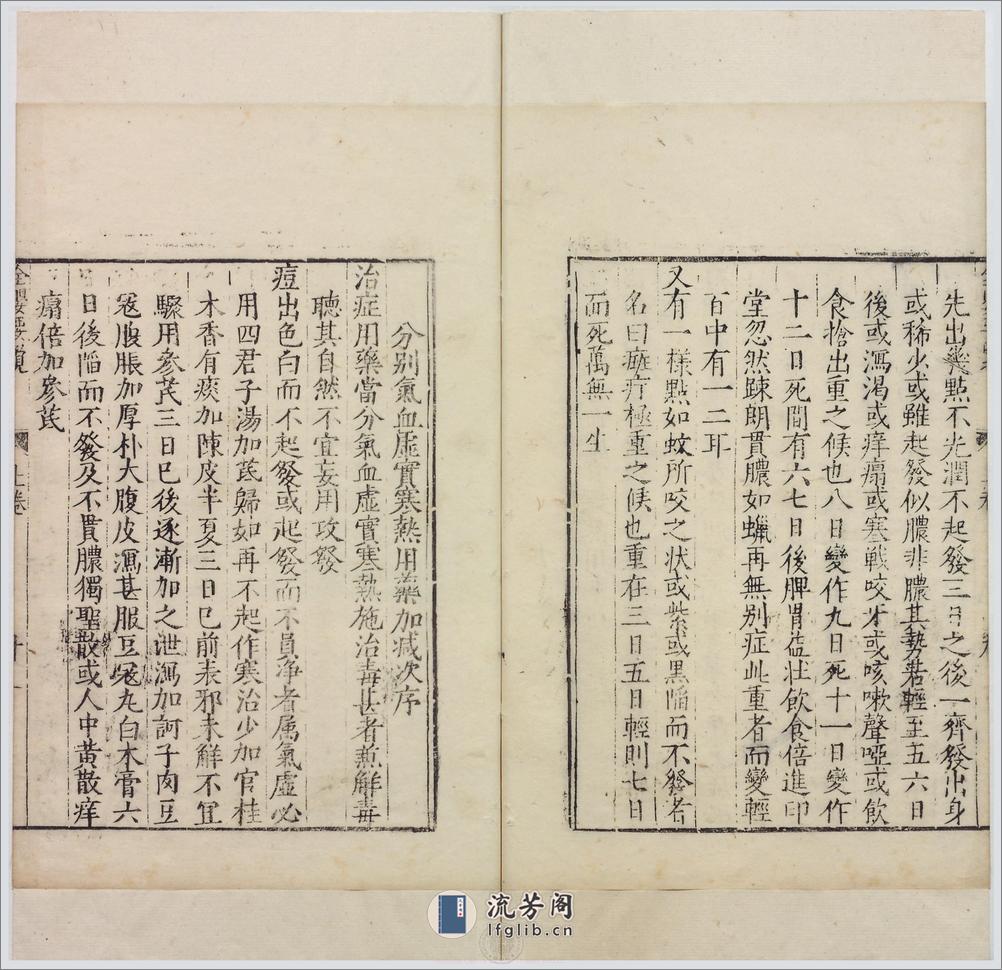 先出幾點不光潤不起發三日之後一齊發出身
或稀少或雖起發似膿非膿其勢若輕至五六日
後或瀉渴或痒癟或寒戦咬牙或咳嗽聲啞或飲
食搶出重之候也八日變作九日死十一日變作
十二日死間有六七日後脾胃益壮飲食倍進印
堂忽然踈朗貫膿如蠟再無別症此重者而變輕
百中有一二耳
又有一樣點如蚊所咬之状或紫或黒陥而不發者
名曰疔極重之候也重在三日五日輕則七日
而死萬無一生
分別氣血虛實寒熱用藥加减次序
治症用藥當分氣血虛實寒熱施治毒甚者兼解毒
聽其自然不宜妄用攻發
痘出色白而不起發或起發而不員淨者属氣虛必
用四君子湯加芪歸如再不起作寒治少加官桂
木香有痰加陳皮半夏三日已前表邪未解不宜
驟用參芪三日已後逐漸加之泄瀉加訶子肉豆
寇腹脹加厚朴大腹皮瀉甚服豆寇丸白术膏六
日後陥而不發及不貫膿獨聖散或人中黃散痒
癟倍加參芪
上卷
十
流芳阁
lfglib.cn